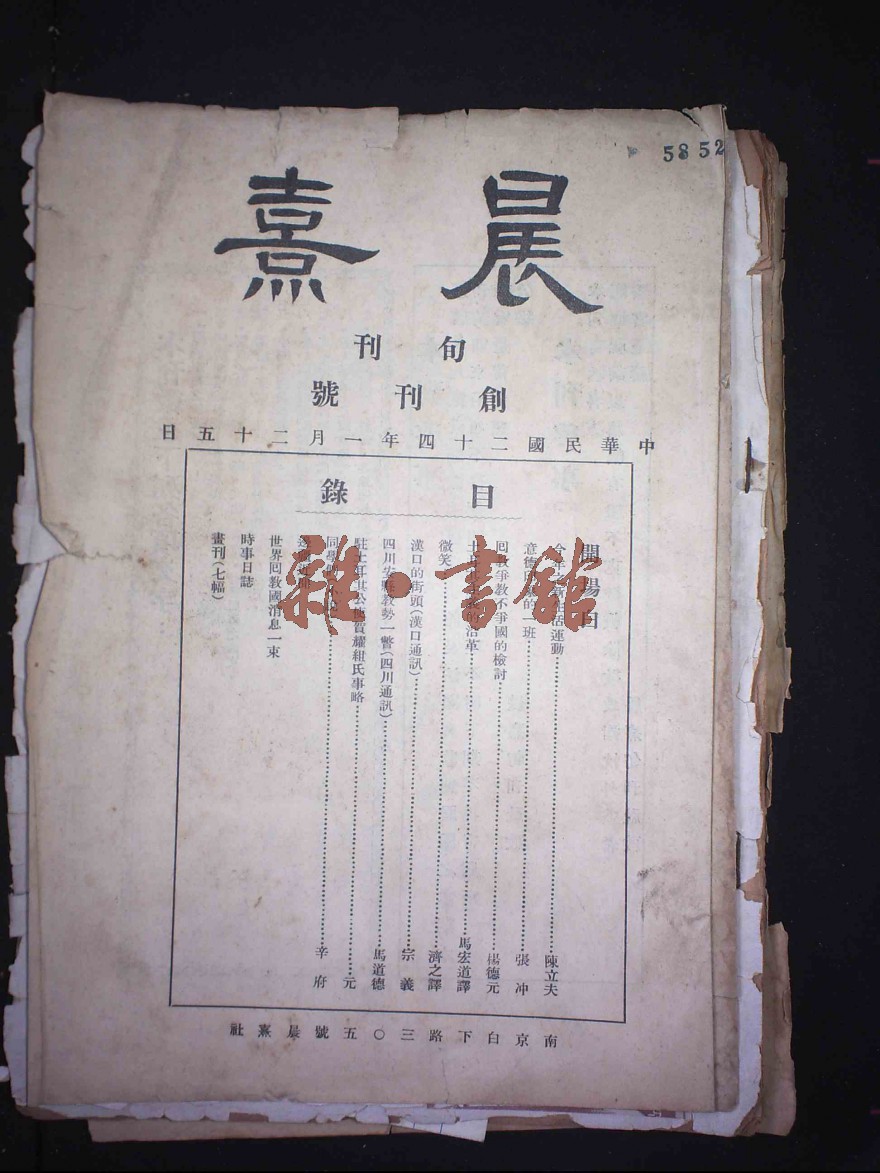 5852
晨熹
旬刊
創刊號
中華民國二十四年一月二十五日
目錄
開場白
生活運動 陳立夫
意德 的一班 張冲
回教爭教不爭國的檢討 楊德元
的沿革 馬宏道譯
微笑 濟之譯
漢口的街頭(漢口通訊) 宗義
四川 教勢一瞥(四川通訊) 馬道德
駐土耳其公使賀耀組氏事略 元
同學 辛府
世界回教國消息一束
時事日誌
畫刊(七幅)
南京白下路三〇五號晨熹社
雜·書館